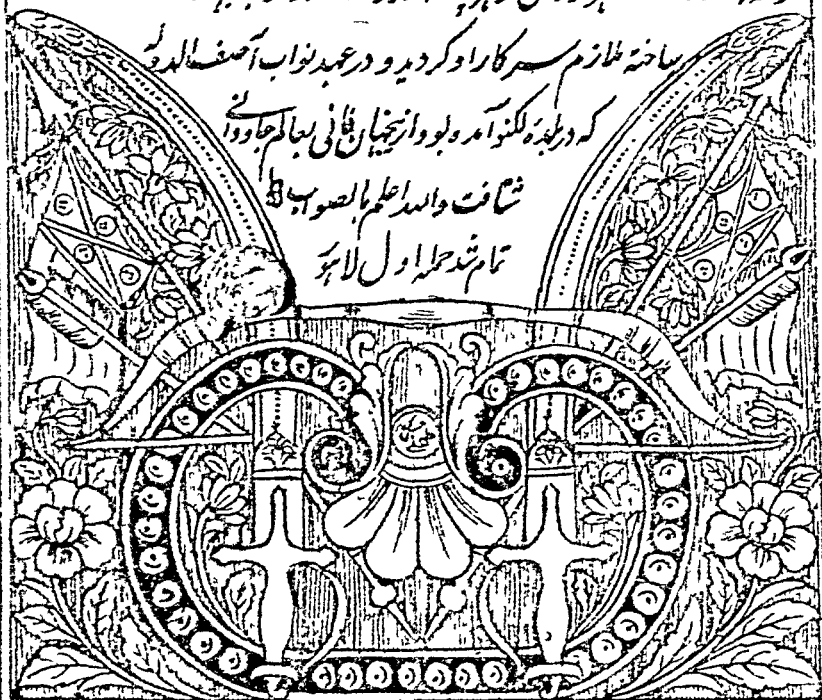 ساخته ملازم سرکار او کردید و در عهد نواب آصف الدوله
که در بلده لکنو آمده بود ازینجهان فانی بعالم جاودانے
شتافت والله اعلم بالصواب
تمام شد حمله اول